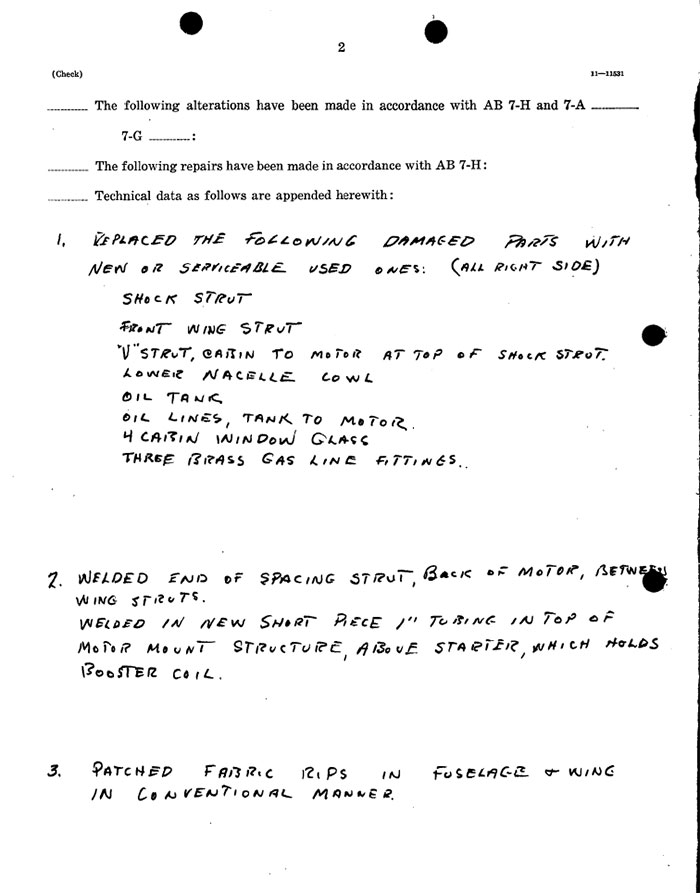 2
(Check)
11—11531
The following alterations have been made in accordance with AB 7-H and 7-A
7-G :
The following repairs have been made in accordance with AB 7-H:
Technical data as follows are appended herewith:
1. REPLACED THE FOLLOWING DAMAGED PARTS WITH
NEW OR SERVICEABLE USED ONES: (ALL RIGHT SIDE)
SHOCK STRUT
FRONT WING STRUT
"V" STRUT, CABIN TO MOTOR AT TOP OF SHOCK STRUT.
LOWER NACELLE COWL
OIL TANK
OIL LINES, TANK TO MOTOR.
4 CABIN WINDOW GLASS
THREE BRASS GAS LINE FITTINGS..
2. WELDED END OF SPACING STRUT, BACK OF MOTOR, BETWEEN
WING STRUTS.
WELDED IN NEW SHORT PIECE 1" TUBING IN TOP OF
MOTOR MOUNT STRUCTURE, ABOVE STARTER, WHICH HOLDS
BOOSTER COIL.
3. PATCHED FABRIC RIPS IN FUSELAGE & WING
IN CONVENTIONAL MANNER.